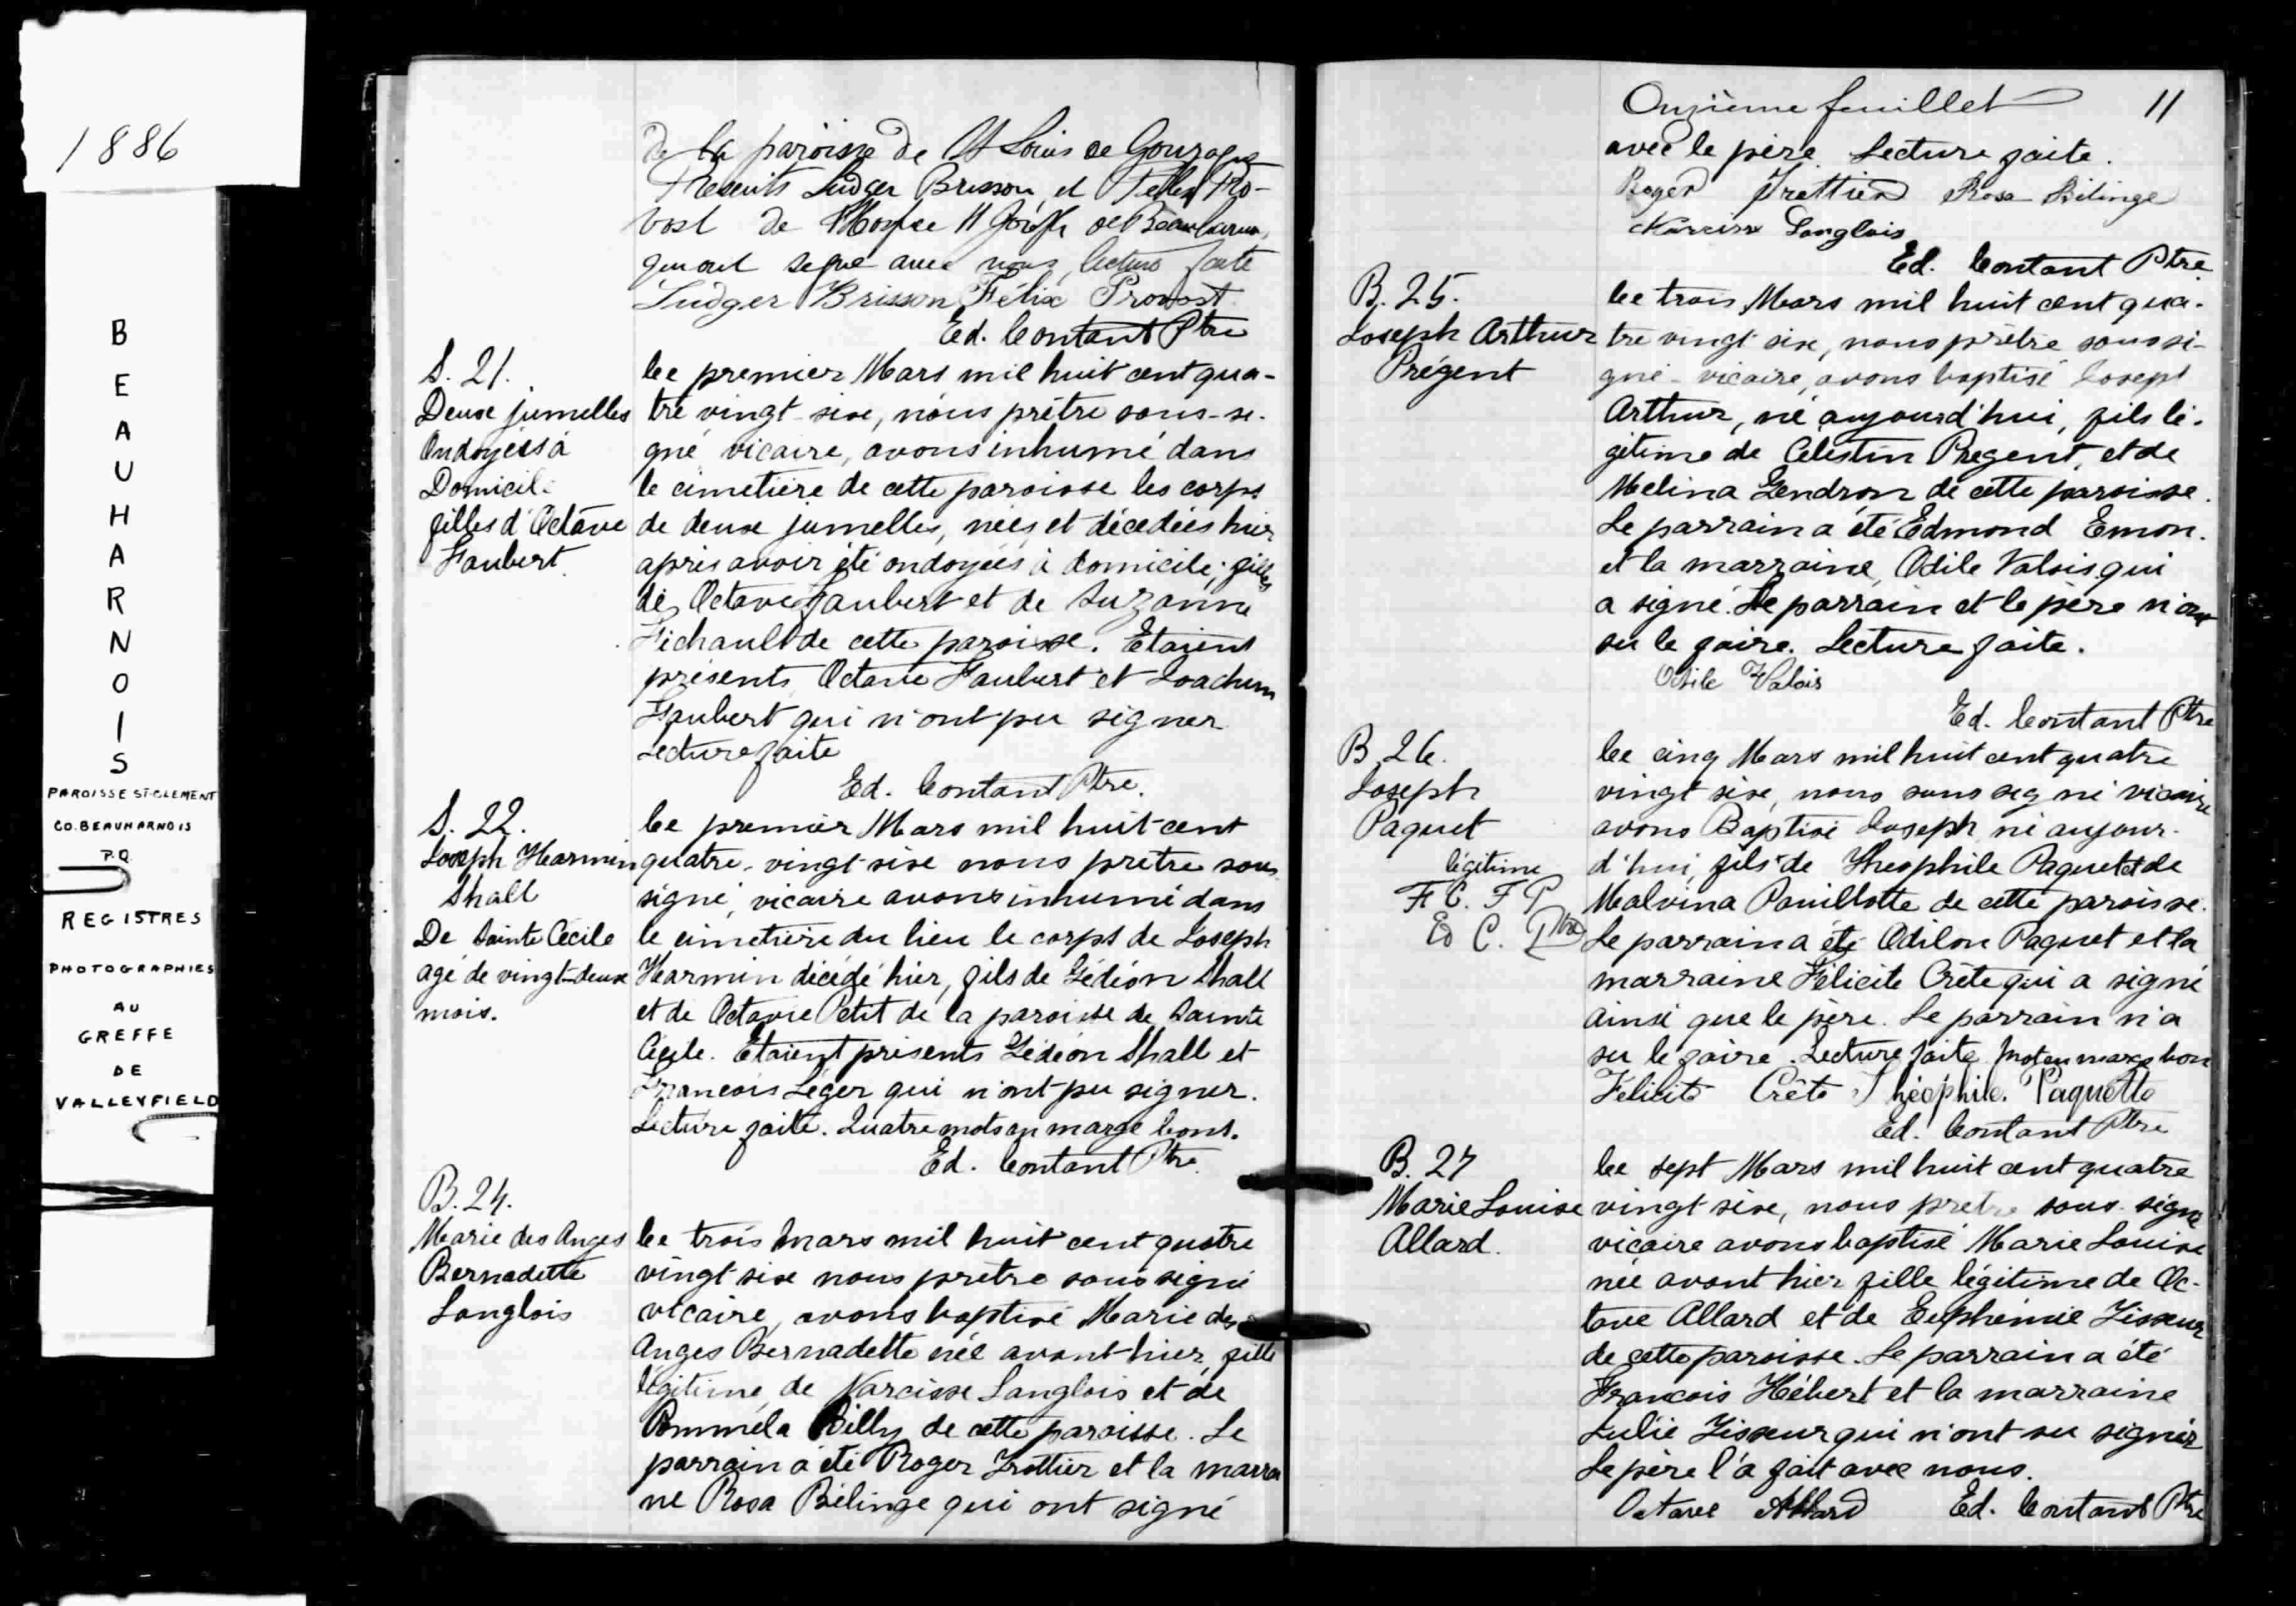 1886
BEAUHARNOIS
PAROISSE ST-CLEMENT
CO. BEAUHARNOIS
P.Q.
REGISTRES
PHOTOGRAPHIES
AU
GREFFE
DE
VALLEYFIELD
de la paroisse de St Louis de Gonzague
Présents Ludger Brisson, et Felix Pro-
vost de St Joseph de Beauharnois,
qui ont signé avec nous, lecture faite
Ludger Brisson Félix Provost
Ed. Contant Ptre
S. 21.
Deux jumelles
Ondoyées à
Domicile
filles d'Octave
Faubert.
Ce premier Mars mil huit cent qua-
tre vingt-six, nous prêtre sous-si-
gné vicaire, avons inhumé dans
le cimetière de cette paroisse les corps
de deux jumelles, nées et décédées hier
après avoir été ondoyées à domicile; filles
de Octave Faubert et de Suzanne
Fichault de cette paroisse. Etaient
présents Octave Faubert et Joachim
Faubert qui n'ont pu signer
Lecture faite
Ed. Contant Ptre.
S. 22.
Joseph Harmin
Shall
De Sainte Cécile
agé de vingt-deux
mois.
Ce premier Mars mil huit cent
quatre-vingt-six nous prêtre sous
signé, vicaire avons inhumé dans
le cimetière du lieu le corps de Joseph
Harmin décédé hier, fils de Gédéon Shall
et de Octavie Petit de la paroisse de Sainte
Cécile. Etaient présents Gédéon Shall et
François Léger qui n'ont pu signer.
Lecture faite. Quatre mots en marge bons.
Ed. Contant Ptre.
B. 24.
Marie des Anges
Bernadette
Langlois
Ce trois Mars mil huit cent quatre
vingt six nous prêtre soussigné
vicaire, avons baptisé Marie des
Anges Bernadette née avant-hier, fille
légitime de Narcisse Langlois et de
Pomméla Billy de cette paroisse. Le
parrain a été Roger Trottier et la marrai
ne Rosa Bélinge qui ont signé
Onzième feuillet 11
avec le père. Lecture faite.
Roger Trottier Rosa Bélinge
Narcisse Langlois
Ed. Contant Ptre
B. 25.
Joseph Arthur
Prégent
Ce trois Mars mil huit cent qua-
tre vingt six, nous prêtre soussi-
gné - vicaire, avons baptisé Joseph
Arthur, né aujourd'hui, fils lé-
gitime de Célestin Pregent, et de
Melina Gendron de cette paroisse.
Le parrain a été Edmond Emon.
et la marraine, Odile Valois qui
a signé. Le parrain et le père n'ont
su le faire. Lecture faite.
Odile Valois
Ed. Contant Ptre
B 26.
Joseph
Paquet
légitime
F C. T P
Ed C. Ptre
Ce cinq Mars mil huit cent quatre
vingt six, nous soussigné vicaire
avons Baptisé Joseph né aujour-
d'hui, fils de Théophile Paquet et de
Malvina Pouillotte de cette paroisse.
Le parrain a été Odilon Paquet et la
marraine Félicité Crête qui a signé
ainsi que le père. Le parrain n'a
su le faire. Lecture faite mot en marge bon
Félicité Crête Théophile Paquette
Ed. Contant Ptre
B. 27
Marie Louise
Allard.
Ce sept Mars mil huit cent quatre
vingt six, nous pretre sous-signé
vicaire avons baptisé Marie Louise
née avant hier fille légitime de Oc-
tave Allard et de Euphémie Tisseur
de cette paroisse. Le parrain a été
François Hébert et la marraine
Julie Tisseur qui n'ont su signer
Le père l'a fait avec nous.
Octave Allard Ed. Contant Ptre